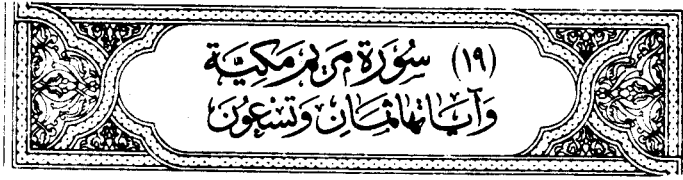 (١٩) سُورَة مَرْيَم مَكِّيَّة
وَآيَاتهَا ثَمَانٍ وَتِسْعُونَ